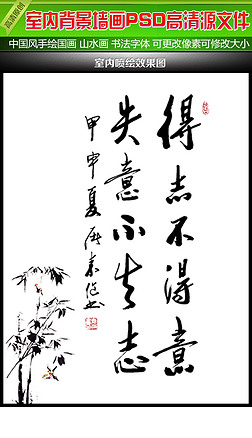 高清原创
室内背景墙画PSD高清源文件
中国风手绘国画 山水画 书法字体 可更改像素可修改大小
室内喷绘效果图
得志不得意
失意不失志
甲申夏
书